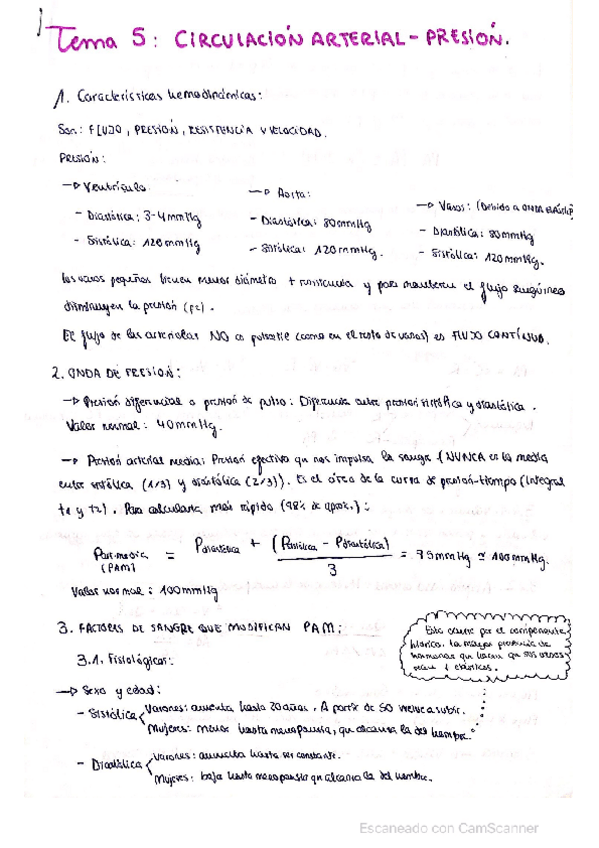 Tema 5: CIRCULACIÓN ARTERIAL - PRESIÓN.
1. Características hemodinámicas:
Son: FLUJO, PRESIÓN, RESISTENCIA Y VELOCIDAD.
PRESIÓN:
→ Ventrículo
- Diastólica: 3-4 mmHg
- Sistólica: 120 mmHg
→ Aorta:
- Diastólica: 80 mmHg
- Sistólica: 120 mmHg.
→ Vasos: (Debido a ONDA ELÁSTICA)
- Diastólica: 80 mmHg
- Sistólica: 120 mmHg.
Los vasos pequeños tienen menor diámetro + resistencia y para mantener el flujo sanguíneo
disminuyen la presión
El flujo de las arteriolas NO es pulsátil (como en el resto de vasos) es FLUJO CONTÍNUO.
2. ONDA DE PRESIÓN:
→ Presión diferencial o presión de pulso: Diferencia entre presión sistólica y diastólica.
Valor normal: 40 mmHg.
→ Presión arterial media: Presión efectiva que nos impulsa la sangre (NUNCA es la media
entre sistólica (1/3) y diastólica (2/3)). Es el área de la curva de presión-tiempo (integral
t1 y t2). Para calcularla más rápido (98% de aprox.):
Par.media (PAM) = Pdiastólica + (Psistólica - Pdiastólica) / 3 = 95 mmHg ≃ 100 mmHg.
Valor normal: 100 mmHg
3. FACTORES DE SANGRE QUE MODIFICAN PAM:
3.1. Fisiológicos:
Esto ocurre por el componente
hídrico. La mayor presencia de
hormonas que hacen que sus vasos
sean + elásticos.
→ Sexo y edad:
- Sistólica
Varones: aumenta hasta 20 años. A partir de 50 vuelve a subir.
Mujeres: menor hasta menopausia, que alcanza la del hombre.
- Diastólica
Varones: aumenta hasta ser constante.
Mujeres: baja hasta menopausia que alcanza la del hombre.
Escaneado con CamScanner